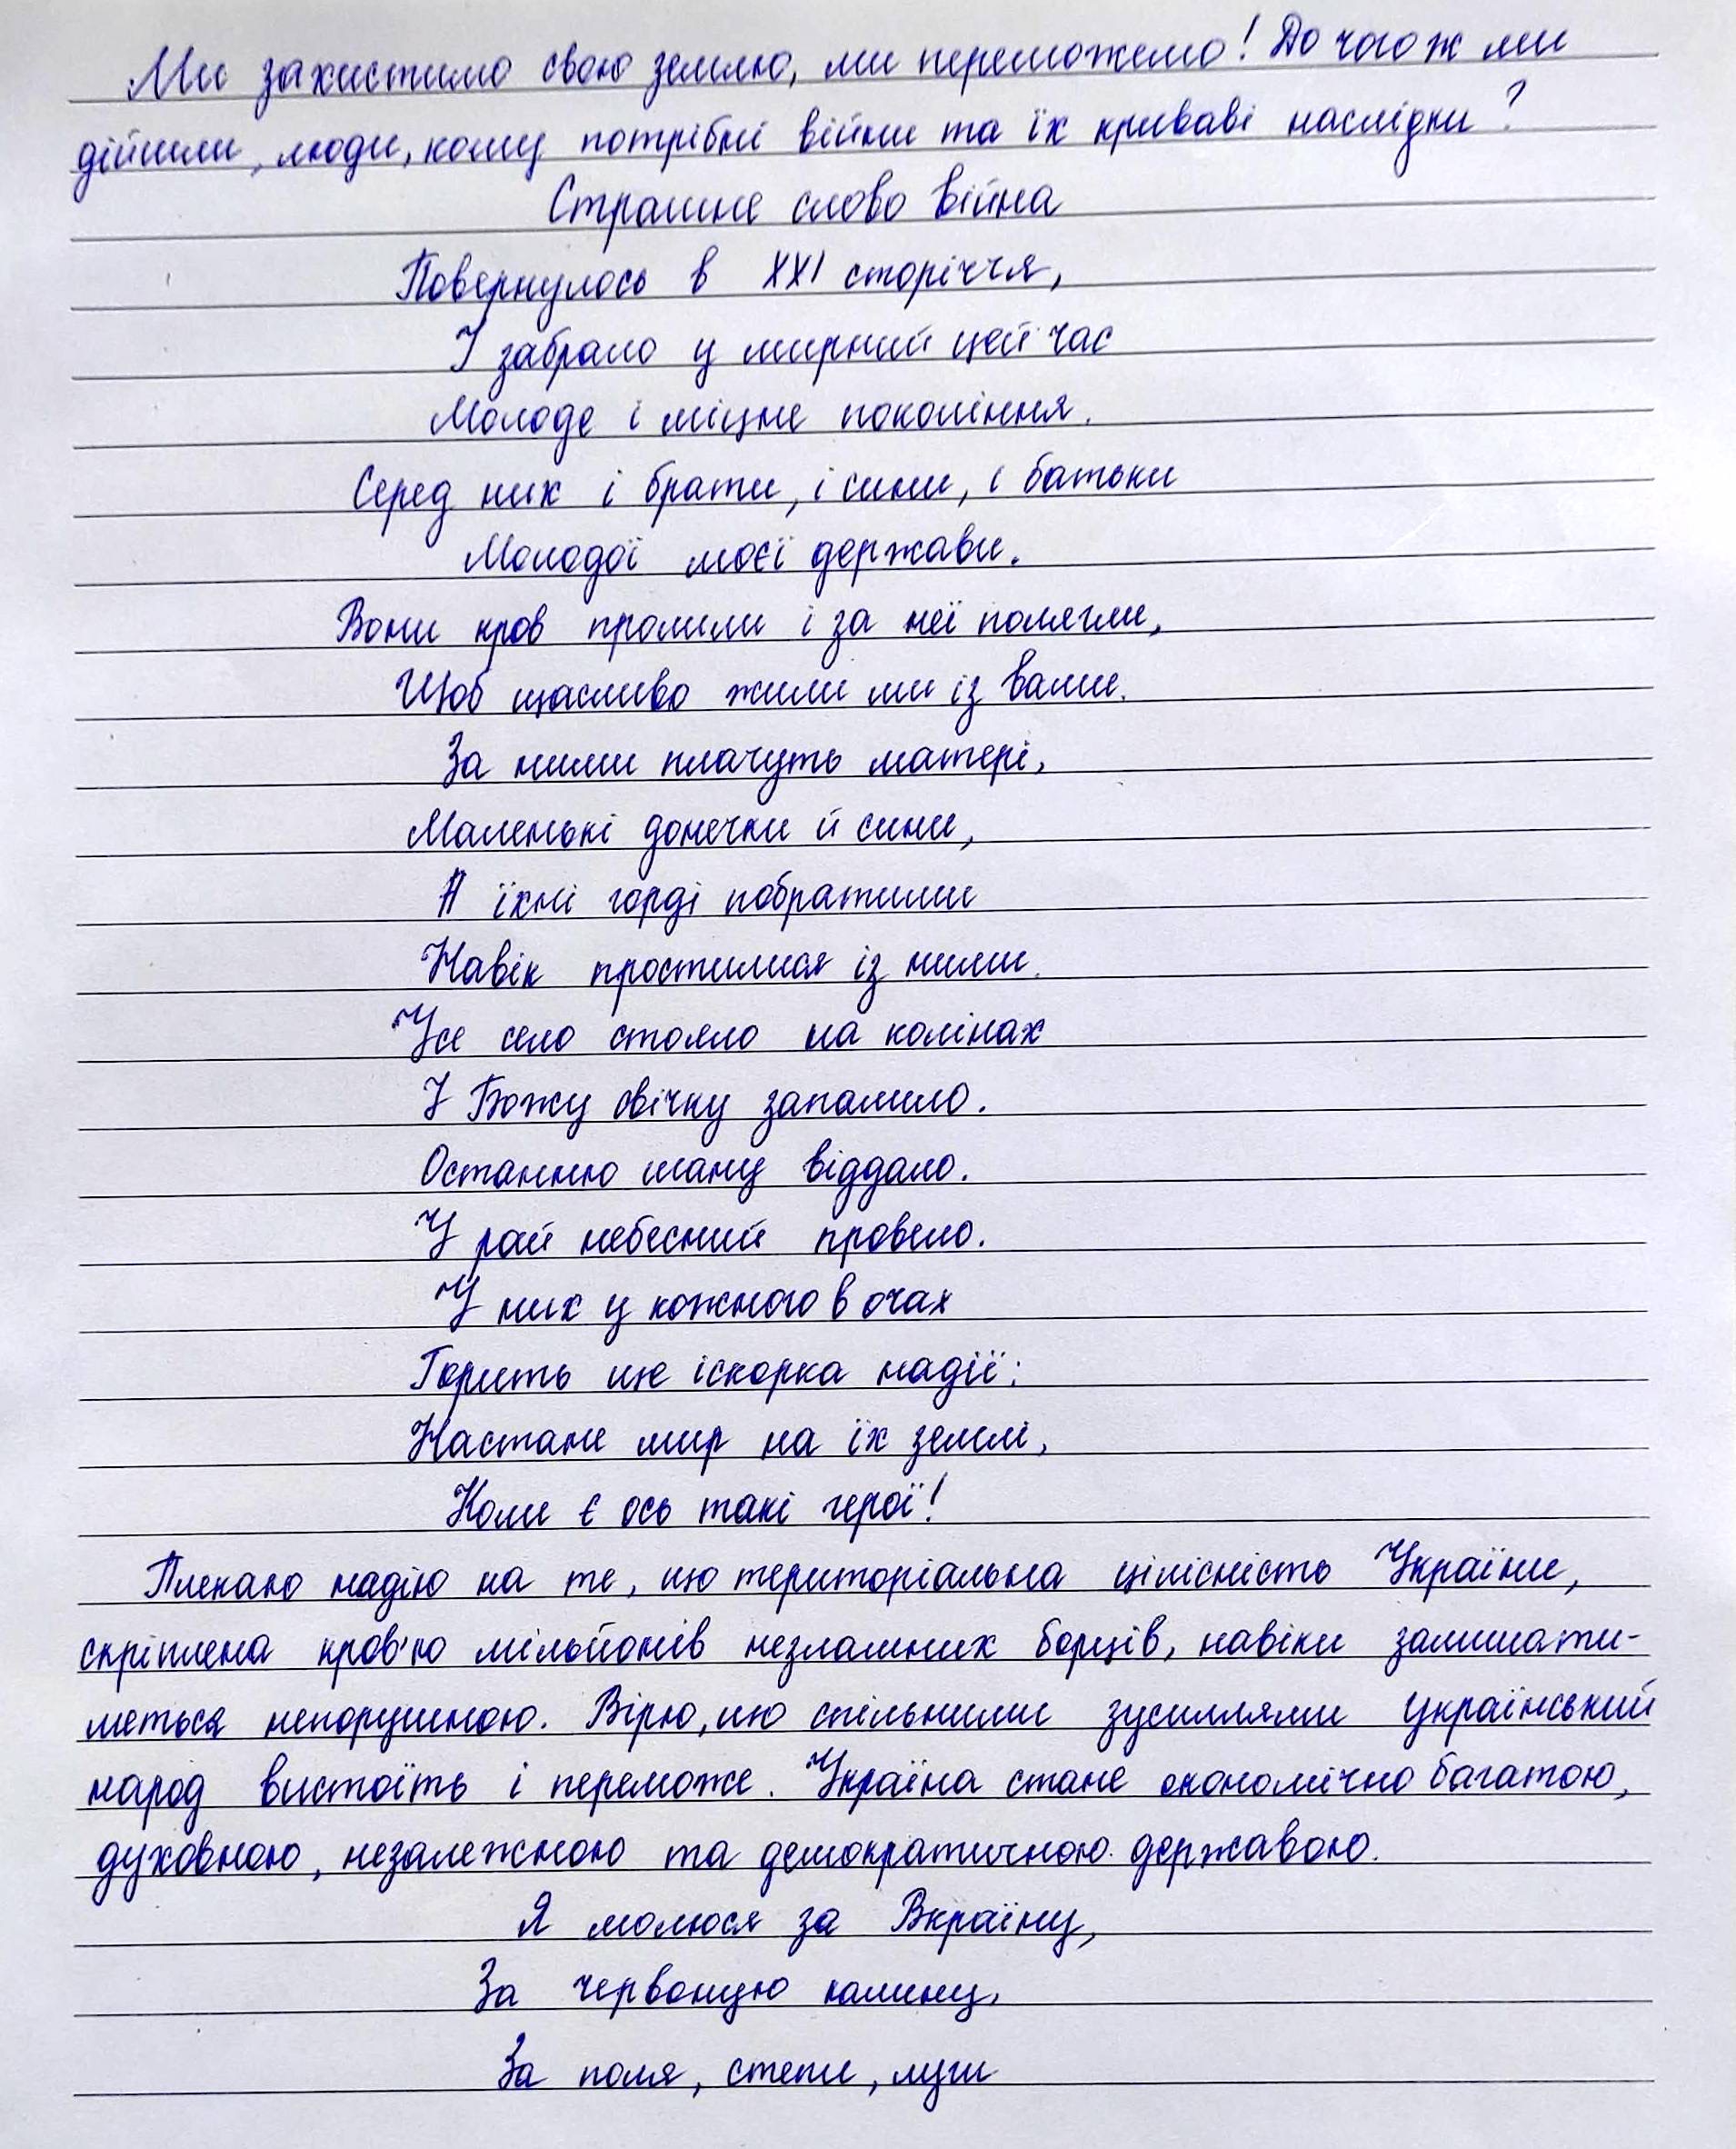 Ми захистимо свою землю, ми переможемо! До чого ж ми
дійшли, люди, кому потрібні війни та їх криваві наслідки?
Страшне слово війна
Повернулось в XXI сторіччя,
І забрало у мирний цей час
Молоде і міцне покоління.
Серед них і брати, і сини, і батьки
Молодої моєї держави.
Вони кров пролили і за неї полягли,
Щоб щасливо жили ми із вами.
За ними плачуть матері,
Маленькі донечки й сини,
А їхні горді побратими
Навік простилися із ними.
Усе село стояло на колінах
І Божу свічку запалило.
Останню шану віддало.
У рай небесний провело.
У них у кожного в очах
Горить ще іскорка надії:
Настане мир на їх землі,
Коли є ось такі герої!
Плекаю надію на те, що територіальна цілісність України,
скріплена кров'ю мільйонів незламних борців, навіки залишати-
меться непорушною. Вірю, що спільними зусиллями український
народ вистоїть і переможе. Україна стане економічно багатою,
духовною, незалежною та демократичною державою.
Я молюся за Вкраїну,
За червоную калину,
За поля, степи, луги